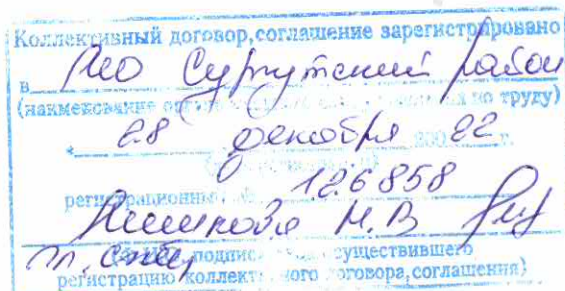 Коллективный договор,соглашение зарегистрировано
в МО Сургутский район
(наименование по труду)
28 декабря 200 22 г.
регистрационный 126858
Н.В
подпись существившего
регистрацию коллективного договора,соглашения)